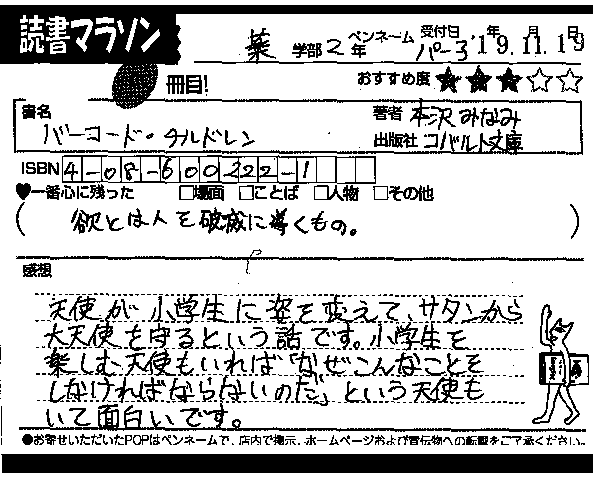 読書マラソン
冊目!
薬 学部 2 年 ペンネーム パー子 受付日 '19年11月19日
おすすめ度 ★★★☆☆
書名 バーコード・チルドレン
著者 本沢みなみ
出版社 コバルト文庫
ISBN 4-08-600222-1
♥一番心に残った □場面 □ことば □人物 □その他
( 欲とは人を破滅に導くもの。 )
感想
天使が小学生に姿を変えて、サタンから
大天使を守るという話です。小学生を
楽しむ天使もいれば「なぜこんなことを
しなければならないのだ」という天使も
いて面白いです。
●お寄せいただいたPOPはペンネームで、店内で掲示、ホームページおよび宣伝物への転載をご了承ください。